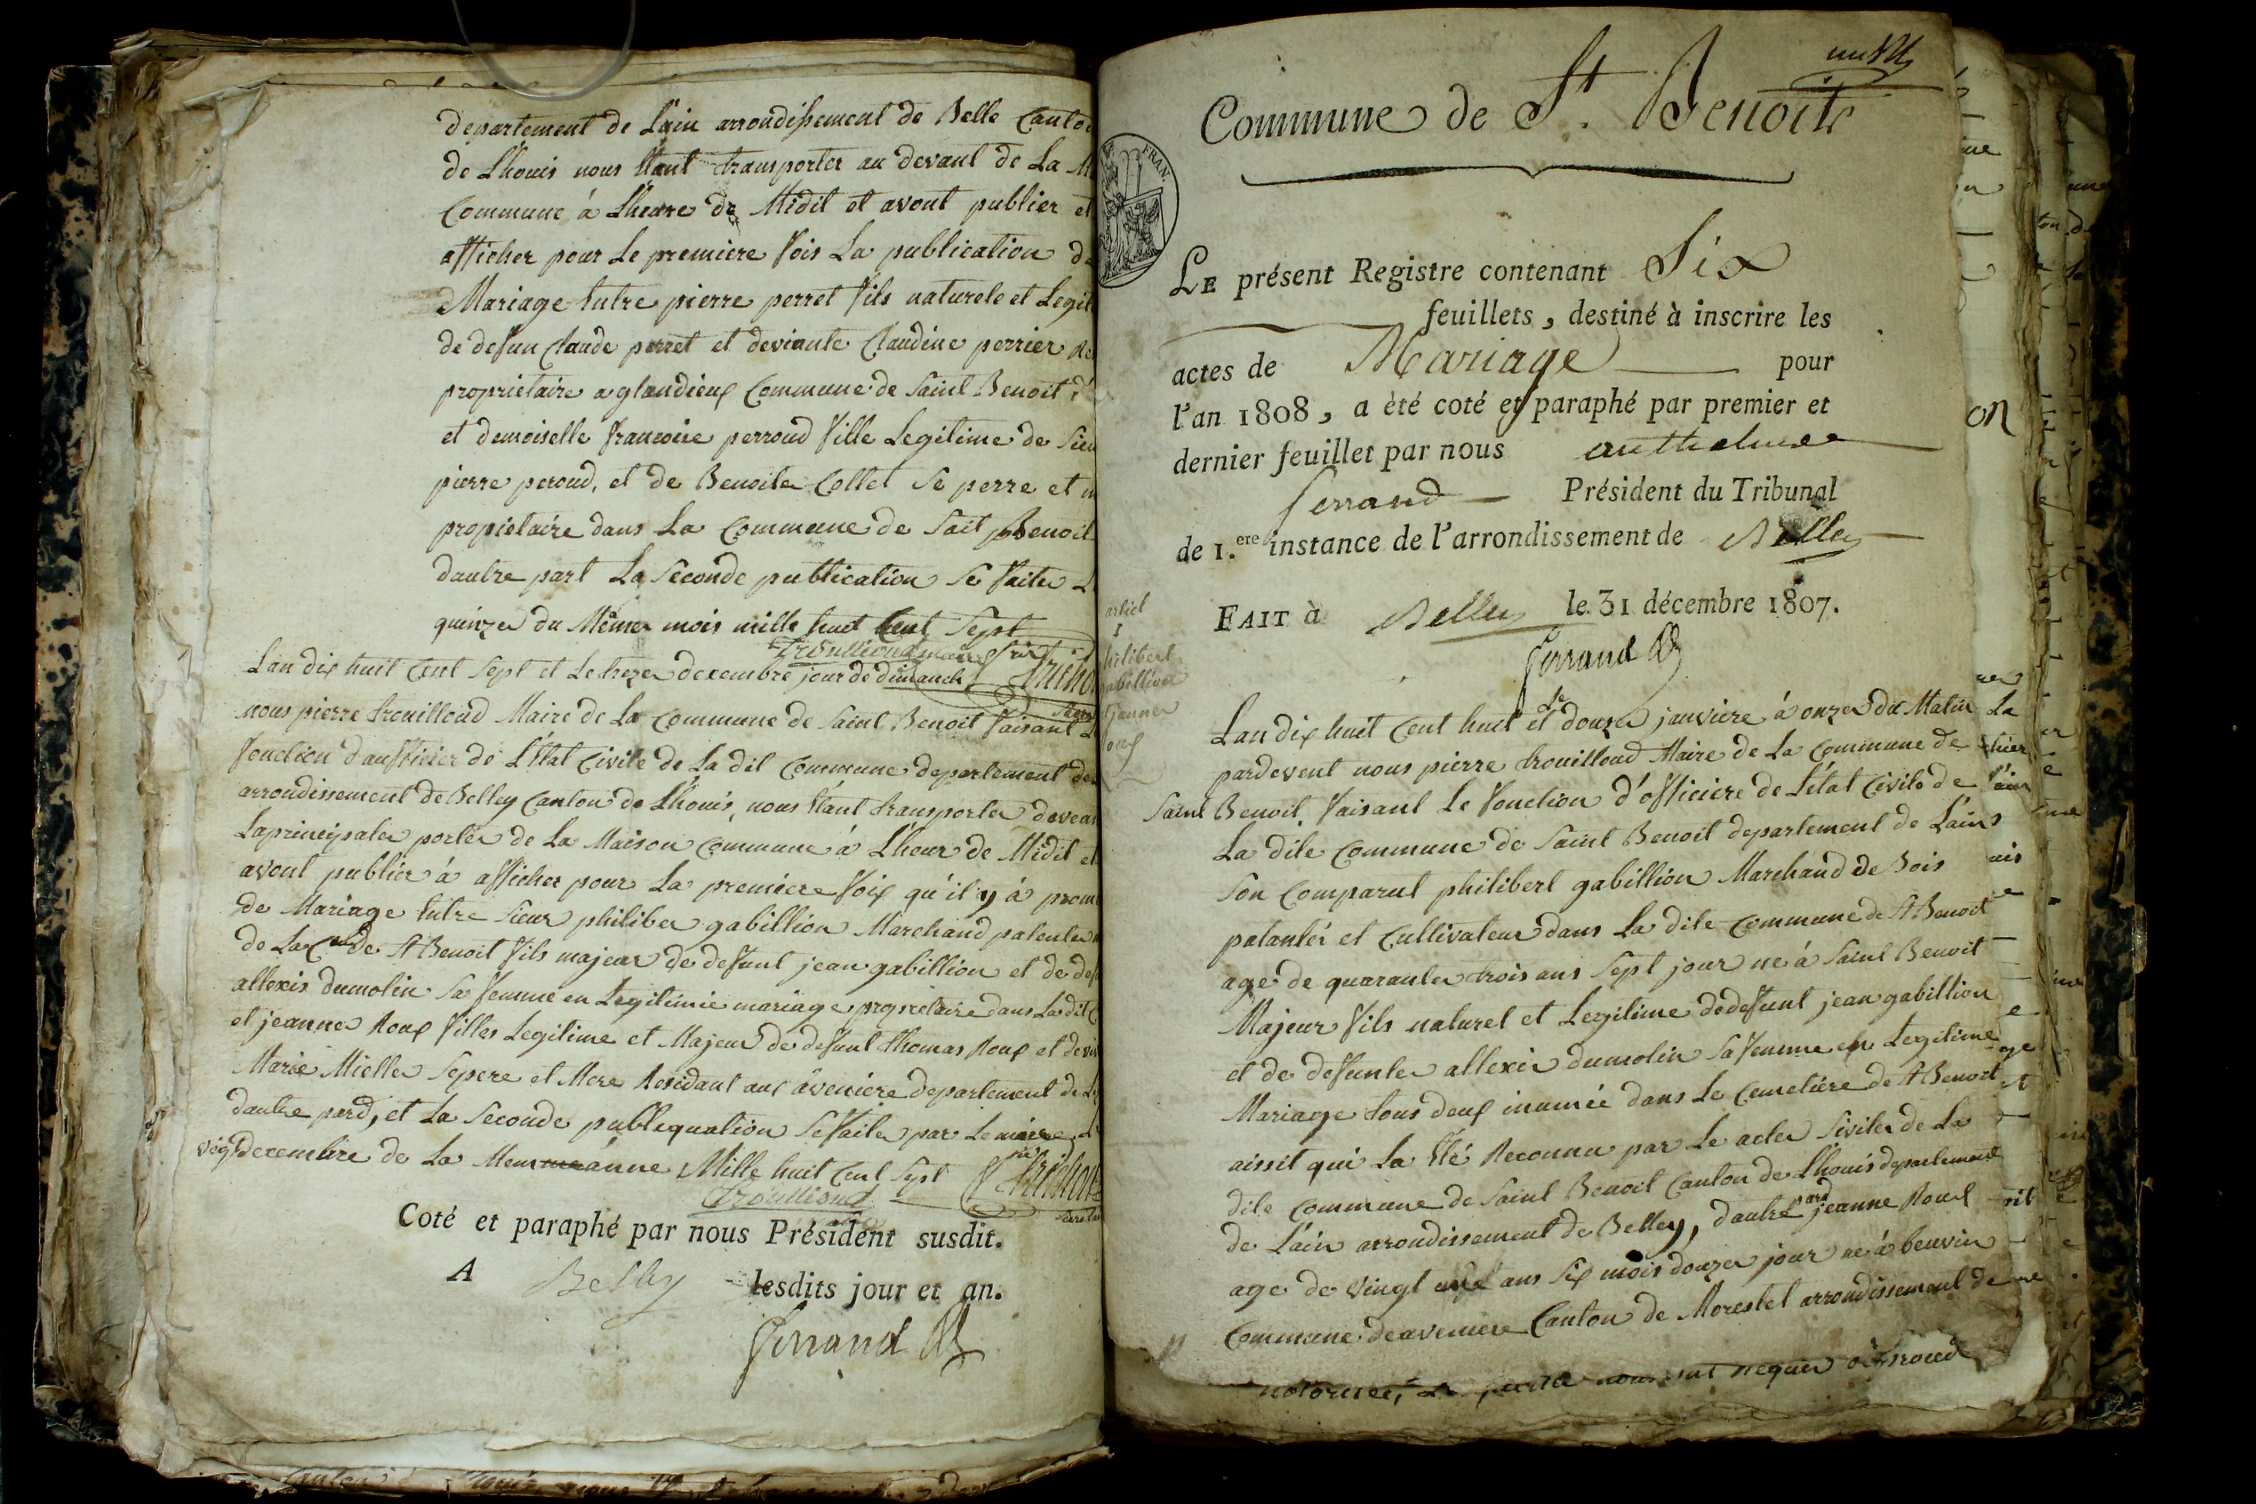 departement de Lain arrondissement de Belle Canton
de Lhouis nous Etant transporter au devant de La
Commune á Lheure de Midit et avont publier et
afficher pour Le premiere fois La publication de
Mariage Entre pierre perret fils naturele et Legit
de defun Claude perret et deviante Claudine perrier
proprietaire a glandieux Commune de Saint Benoit
et demoiselle francoise perroud fille Legitime de Sieu
pierre peroud, et de Benoite Collet Se perre et
propietaire dans La Commune de Sait Benoit
dautre part La Seconde publication Se faite
quinze du Même mois mille huit Cent Sept
trouilloud maire
Lan dix huit Cent Sept et Le treze decembre jour de dimanch
nous pierre trouilloud Maire de La Commune de Saint Benoit faisant
fonction dautficier de L'Etat Civile de La dit Commune departement de
arrondissement de Belley Canton de Lhouis, nous Etant transporter devean
Laprincipale porte de La Maison Commune á L'heur de Midit et
avont publier á afficher pour La premiere foix qu'il y á prom
de Mariage Entre Sieur philiber gabillion Marchand patenter
de La Cne de St Benoit fils majeur de defunt jean gabillion et de def
allexis dumolin Sa femme en Legitimie mariage proprietaire dans La dit
et jeanne Roux filles Legitime et Majeur de defunt thomas Roux et de viv
Marie Mielle Sepere et Mere Residant aux avenière departement de L
dautre pard, et La Seconde publiquation Sefaite par Le maire
vingt decembre de La Mem anne Mille huit Cent Sept
trouilloud
Coté et paraphé par nous Président susdit.
A Belley lesdits jour et an.
Ferrand
Commune de St. Benoite
FRAN.
LE présent Registre contenant Six
feuillets, destiné à inscrire les
actes de Mariage pour
l'an 1808, a èté coté et paraphé par premier et
dernier feuillet par nous anthelme
Ferrand Président du Tribunal
de 1.ere instance de l'arrondissement de Belley
FAIT à Belley le 31 décembre 1807.
Ferrand
articl
1
philibert
gabillion
jeanne
Roux
Lan dix huit Cent huit et le douze janvière á onze du Matin
pardevent nous pierre trouilloud Maire de La Commune de
Saint Benoit, faisant Le fonction d'officiere de L'état Civile de
La dite Commune de Saint Benoit departement de Lain
Son Comparut philibert gabillion Marchand de Bois
patantér et Cultivateur dans La dite Commune de St Benoit
age de quarante trois ans Sept jour ne á Saint Benoit
Majeur fils naturel et Legitime dedefunt jean gabillion
et de defunte allexis dumolin Sa femme en Legitime
Mariage tous deux inumée dans Le Cemetiére de St Benoit
aissit qui La Eté Reconnu par Le acte Sivile de La
dite Commune de Saint Benoit Canton de Lhouis departement
de Lain arrondissement de Belley, dautre pard jeanne Roux
age de vingt ans Six mois douze jour ne á beuvin
Commune deaveniere Canton de Morestel arrondissement de